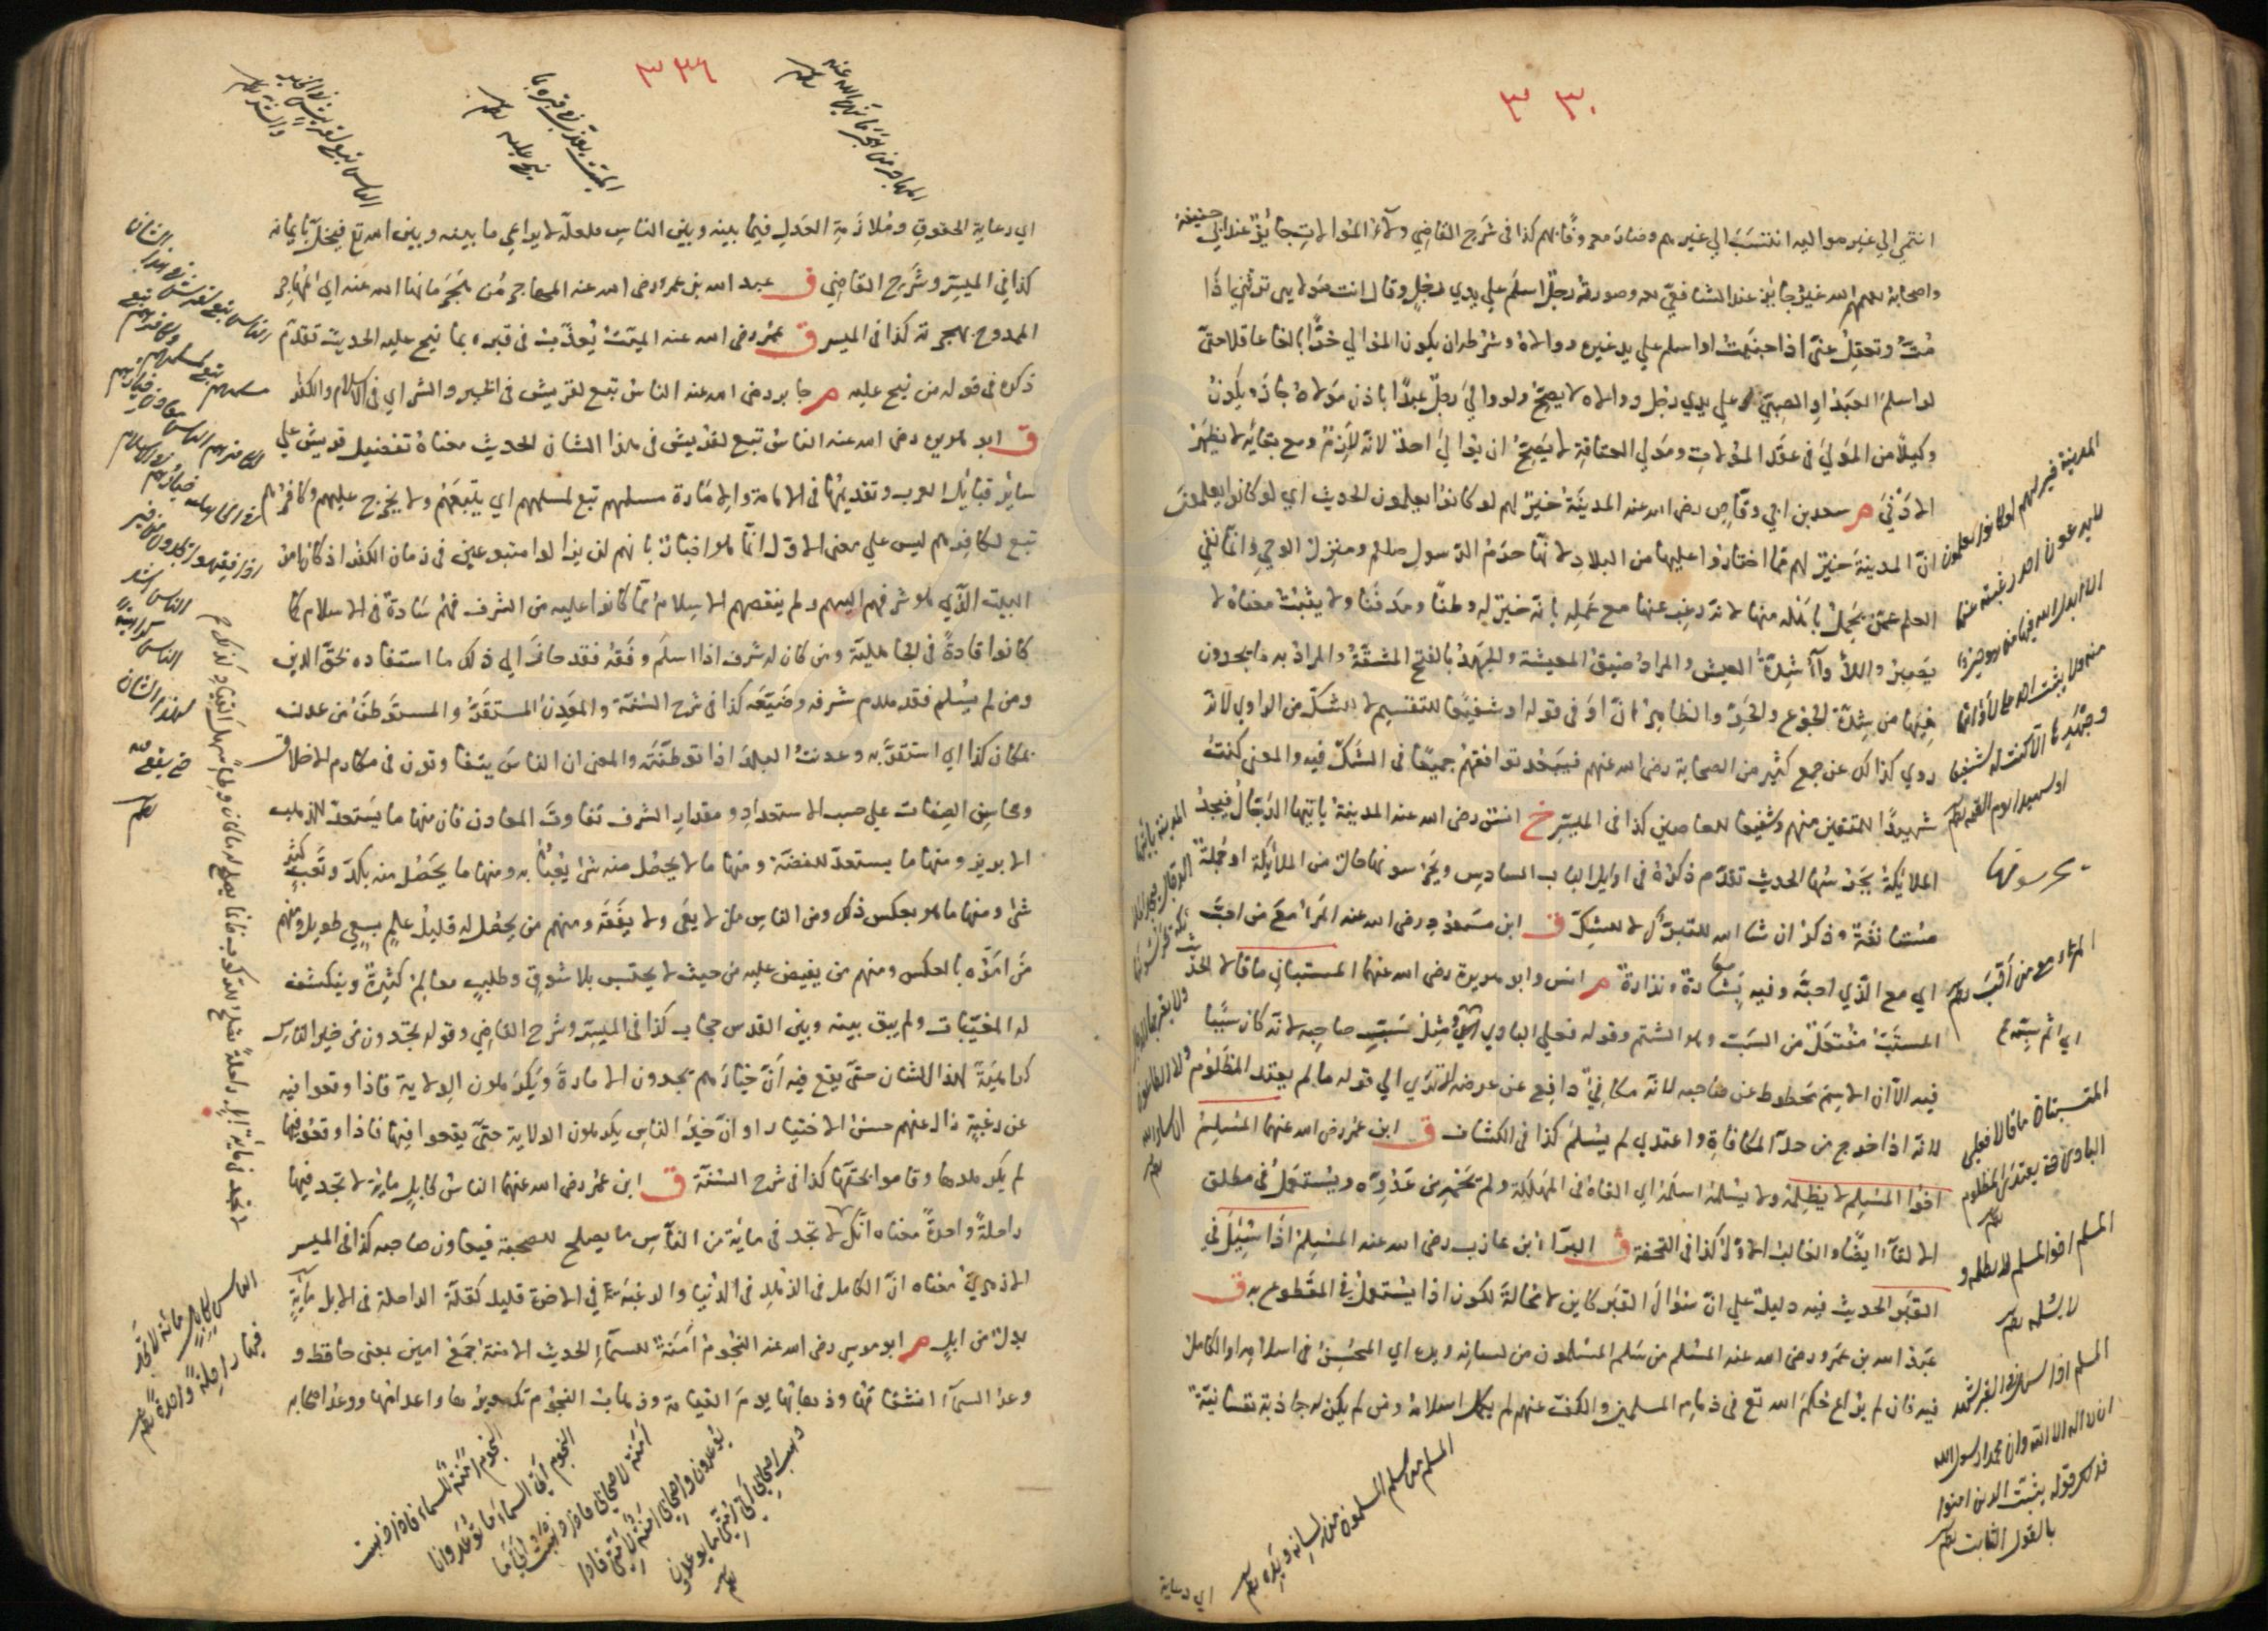 ٣٣٠
انتمي الي غير مواليه انتسب الي غيرهم وصار معروفا بهم كذا في شرح القاضي ولاء الموالات جائز عند ابي حنيفة
واصحابه رحمهم الله غير جائز عند الشافعي رحمه وصورته رجل اسلم علي يدي رجل وقال انت مولاي ترثني اذا
مت وتعقل عني اذا جنيت او اسلم علي يد غيره ووالاه وشرطه ان يكون الموالي حرا بالغا عاقلا حتي
لو اسلم العبد او الصبي علي يدي رجل ووالاه لا يصح ولو والي رجل عبدا باذن مولاه جاز ويكون
وكيلا من المولي في عقد الموالات ومولي العتاقة لا يصح ان يوالي احدا لانه لازم ومع بقائه لا يظهر
الادني م سعد بن ابي وقاص رضي الله عنه المدينة خير لهم لو كانوا يعلمون الحديث اي لو كانوا يعلمون
ان المدينة خير لهم مما اختاروا عليها من البلاد لانها حرم الرسول صلعم ومنزل الوحي وانما نفي
العلم عمن تحمل باهله منها لانه رغب عنها مع علمه بانه خير له وطنا ومدفنا ولا يثبت معناه لا
يصبر واللأواء شدة العيش والمراد ضيق المعيشة والجهد بالفتح المشقة والمراد به ما يجدون
فيها من شدة الجوع والحر والظاهر ان او في قوله او شفيعا للتقسيم لا للشك من الراوي لانه
روي كذلك عن جمع كثير من الصحابة رضي الله عنهم فيبعد توافقهم جميعا في الشك فيه والمعني كنت
شهيدا للمتقين منهم وشفيعا للعاصين كذا في الميسر خ انس رضي الله عنه المدينة ياتيها الدجال فيجد
الملايكة يحرسونها الحديث تقدم ذكره في اوايل الباب السادس ويحرسونها حال من الملائكة او جملة
مستانفة وذكر ان شا الله للتبرك لا للشك ق ابن مسعود رضي الله عنه المرء مع من احب
اي مع الذي احبه وفيه بشارة ونذارة م انس وابو هريرة رضي الله عنهما المستبان ما قالا الحديث
المستب مفتعل من السب وهو الشتم وقوله فعلي البادي اي اثم مثل سبب صاحبه لانه كان سببا
فيه الا ان الاثم محطوط عن صاحبه لانه مكافئ دافع عن عرضه الا تري الي قوله ما لم يعتد المظلوم
لانه اذا خرج من حد المكافاة واعتدي لم يسلم كذا في الكشاف ق ابن عمر رضي الله عنهما المسلم
اخو المسلم لا يظلمه ولا يسلمه اسلمه اي القاه في المهلكة ولم يحمه من عدوه ويستعمل في مطلق
الالقاء ايضا والغالب الاول كذا في التحفة ق البراء بن عازب رضي الله عنه المسلم اذا سئل في
القبر الحديث فيه دليل علي ان سؤال القبر كاين لا محالة لكون اذا يستعمل في المقطوع به ق
عبد الله بن عمرو رضي الله عنه المسلم من سلم المسلمون من لسانه ويده اي المحسن في اسلامه او الكامل
فيه فان لم يراع حكم الله تع في ذمام المسلمين والكف عنهم لم يكمل اسلامه ومن لم يكن له جاذبة نفسانية
المدينة خير لهم لو كانوا يعلمون
لا يدعون احد رغبة عنها
الا ابدل الله فيها من هو خير
منه ولا يثبت احد علي لأوائها
وجهدها الا كنت له شفيعا
او شهيدا يوم القيمة
يحرسونها
المرء مع من احب
اي اثم سبه
المستبان ما قالا فعلي
البادي حتي يعتدي المظلوم
المسلم اخو المسلم لا يظلمه و
لا يسلمه
المسلم اذا سئل في القبر يشهد
ان لا اله الا الله وان محمدا رسول الله
فذلك قوله يثبت الله الذين امنوا
بالقول الثابت
المدينة ياتيها
الدجال فيجد
المسلم من سلم المسلمون من لسانه ويده
اي رعاية
٣٣١
المهاجر من هجر ما نهاه الله عنه
الميت يعذب في قبره بما
نيح عليه
الناس تبع لقريش في الخير
والشر
اي رعاية الحقوق وملازمة العدل فيما بينه وبين الناس فلعله لا يراعي ما بينه وبين الله تع فيخل بايمانه
كذا في الميسر وشرح القاضي ق عبد الله بن عمر رضي الله عنه المهاجر من هجر ما نهاه الله عنه اي المهاجر
الممدوح بهجرته كذا في الميسر ق عمر رضي الله عنه الميت يعذب في قبره بما نيح عليه الحديث تقدم
ذكره في قوله من نيح عليه م جابر رضي الله عنه الناس تبع لقريش في الخير والشر اي في الاسلام والكفر
ق ابو هريرة رضي الله عنه الناس تبع لقريش في هذا الشان الحديث معناه تفضيل قريش علي
سائر قبائل العرب وتقديمها في الامامة والامارة مسلمهم تبع لمسلمهم اي يتبعهم ولا يخرج عليهم وكافرهم
تبع لكافرهم ليس علي معني الاول انما هو اخبار بانهم لن يزالوا متبوعين في زمان الكفر اذ كان امر
البيت الذي هو شرفهم اليهم ولم ينقصهم الاسلام مما كانوا عليه من الشرف فهم سادة في الاسلام كما
كانوا قادة في الجاهلية ومن كان له شرف اذا اسلم وفقه فقد حاز الي ذلك ما استفاده بحق الدين
ومن لم يسلم فقد هدم شرفه وضيعه كذا في شرح السنة والمعدن المستقر والمستوطن من عدنت
بمكان كذا اي استقر به وعدنت البلد اذا توطنته والمعني ان الناس يتفاوتون في مكارم الاخلاق
ومحاسن الصفات علي حسب الاستعداد ومقدار الشرف تفاوت المعادن فان منها ما يستعد للذهب
الابريز ومنها ما يستعد للفضة ومنها ما لا يحصل منه شئ يعبأ به ومنها ما يحصل منه بكد وتعب كثير
شئ ومنها ما هو بعكس ذلك ومن الناس من لا يعي ولا يفقه ومنهم من يحصل له قليل علم بسعي طويل ومنهم
من امره بالعكس ومنهم من يفيض عليه من حيث لا يحتسب بلا شوق وطلب معالم كثيرة وينكشف
له المغيبات ولم يبق بينه وبين القدس حجاب كذا في الميسر وشرح القاضي وقوله تجدون من خير الناس
كراهية لهذا الشان حتي يقع فيه ان خيارهم يجدون الامارة ويكرهون الولاية فاذا وقعوا فيه
عن رغبة زال عنهم حسن الاختيار او ان خير الناس يكرهون الولاية حتي يقعوا فيها فاذا وقعوا فيها
لم يكرهوها وقاموا بحقها كذا في شرح السنة ق ابن عمر رضي الله عنهما الناس كابل مائة لا تجد فيها
راحلة واحدة معناه انك لا تجد في مائة من الناس ما يصلح للصحبة فيعاون صاحبه كذا في الميسر
الازهري معناه ان الكامل في الزهد في الدنيا والرغبة في الاخرة قليل كقلة الراحلة في الابل مائة
بدل من ابل م ابو موسي رضي الله عنه النجوم امنة للسماء الحديث الامنة جمع امين بمعني حافظ و
وعد السماء انشقاقها وذهابها يوم القيامة وذهاب النجوم تكويرها واعدامها ووعد اصحابه
الناس تبع لقريش في هذا الشان
الناس كابل مائة لا تجد
فيها راحلة واحدة
النجوم امنة للسماء فاذا ذهبت
النجوم اتي السماء ما توعد وانا
امنة لاصحابي فاذا ذهبت اتي اصحابي ما
يوعدون واصحابي امنة لامتي فاذا
ذهب اصحابي اتي امتي ما يوعدون